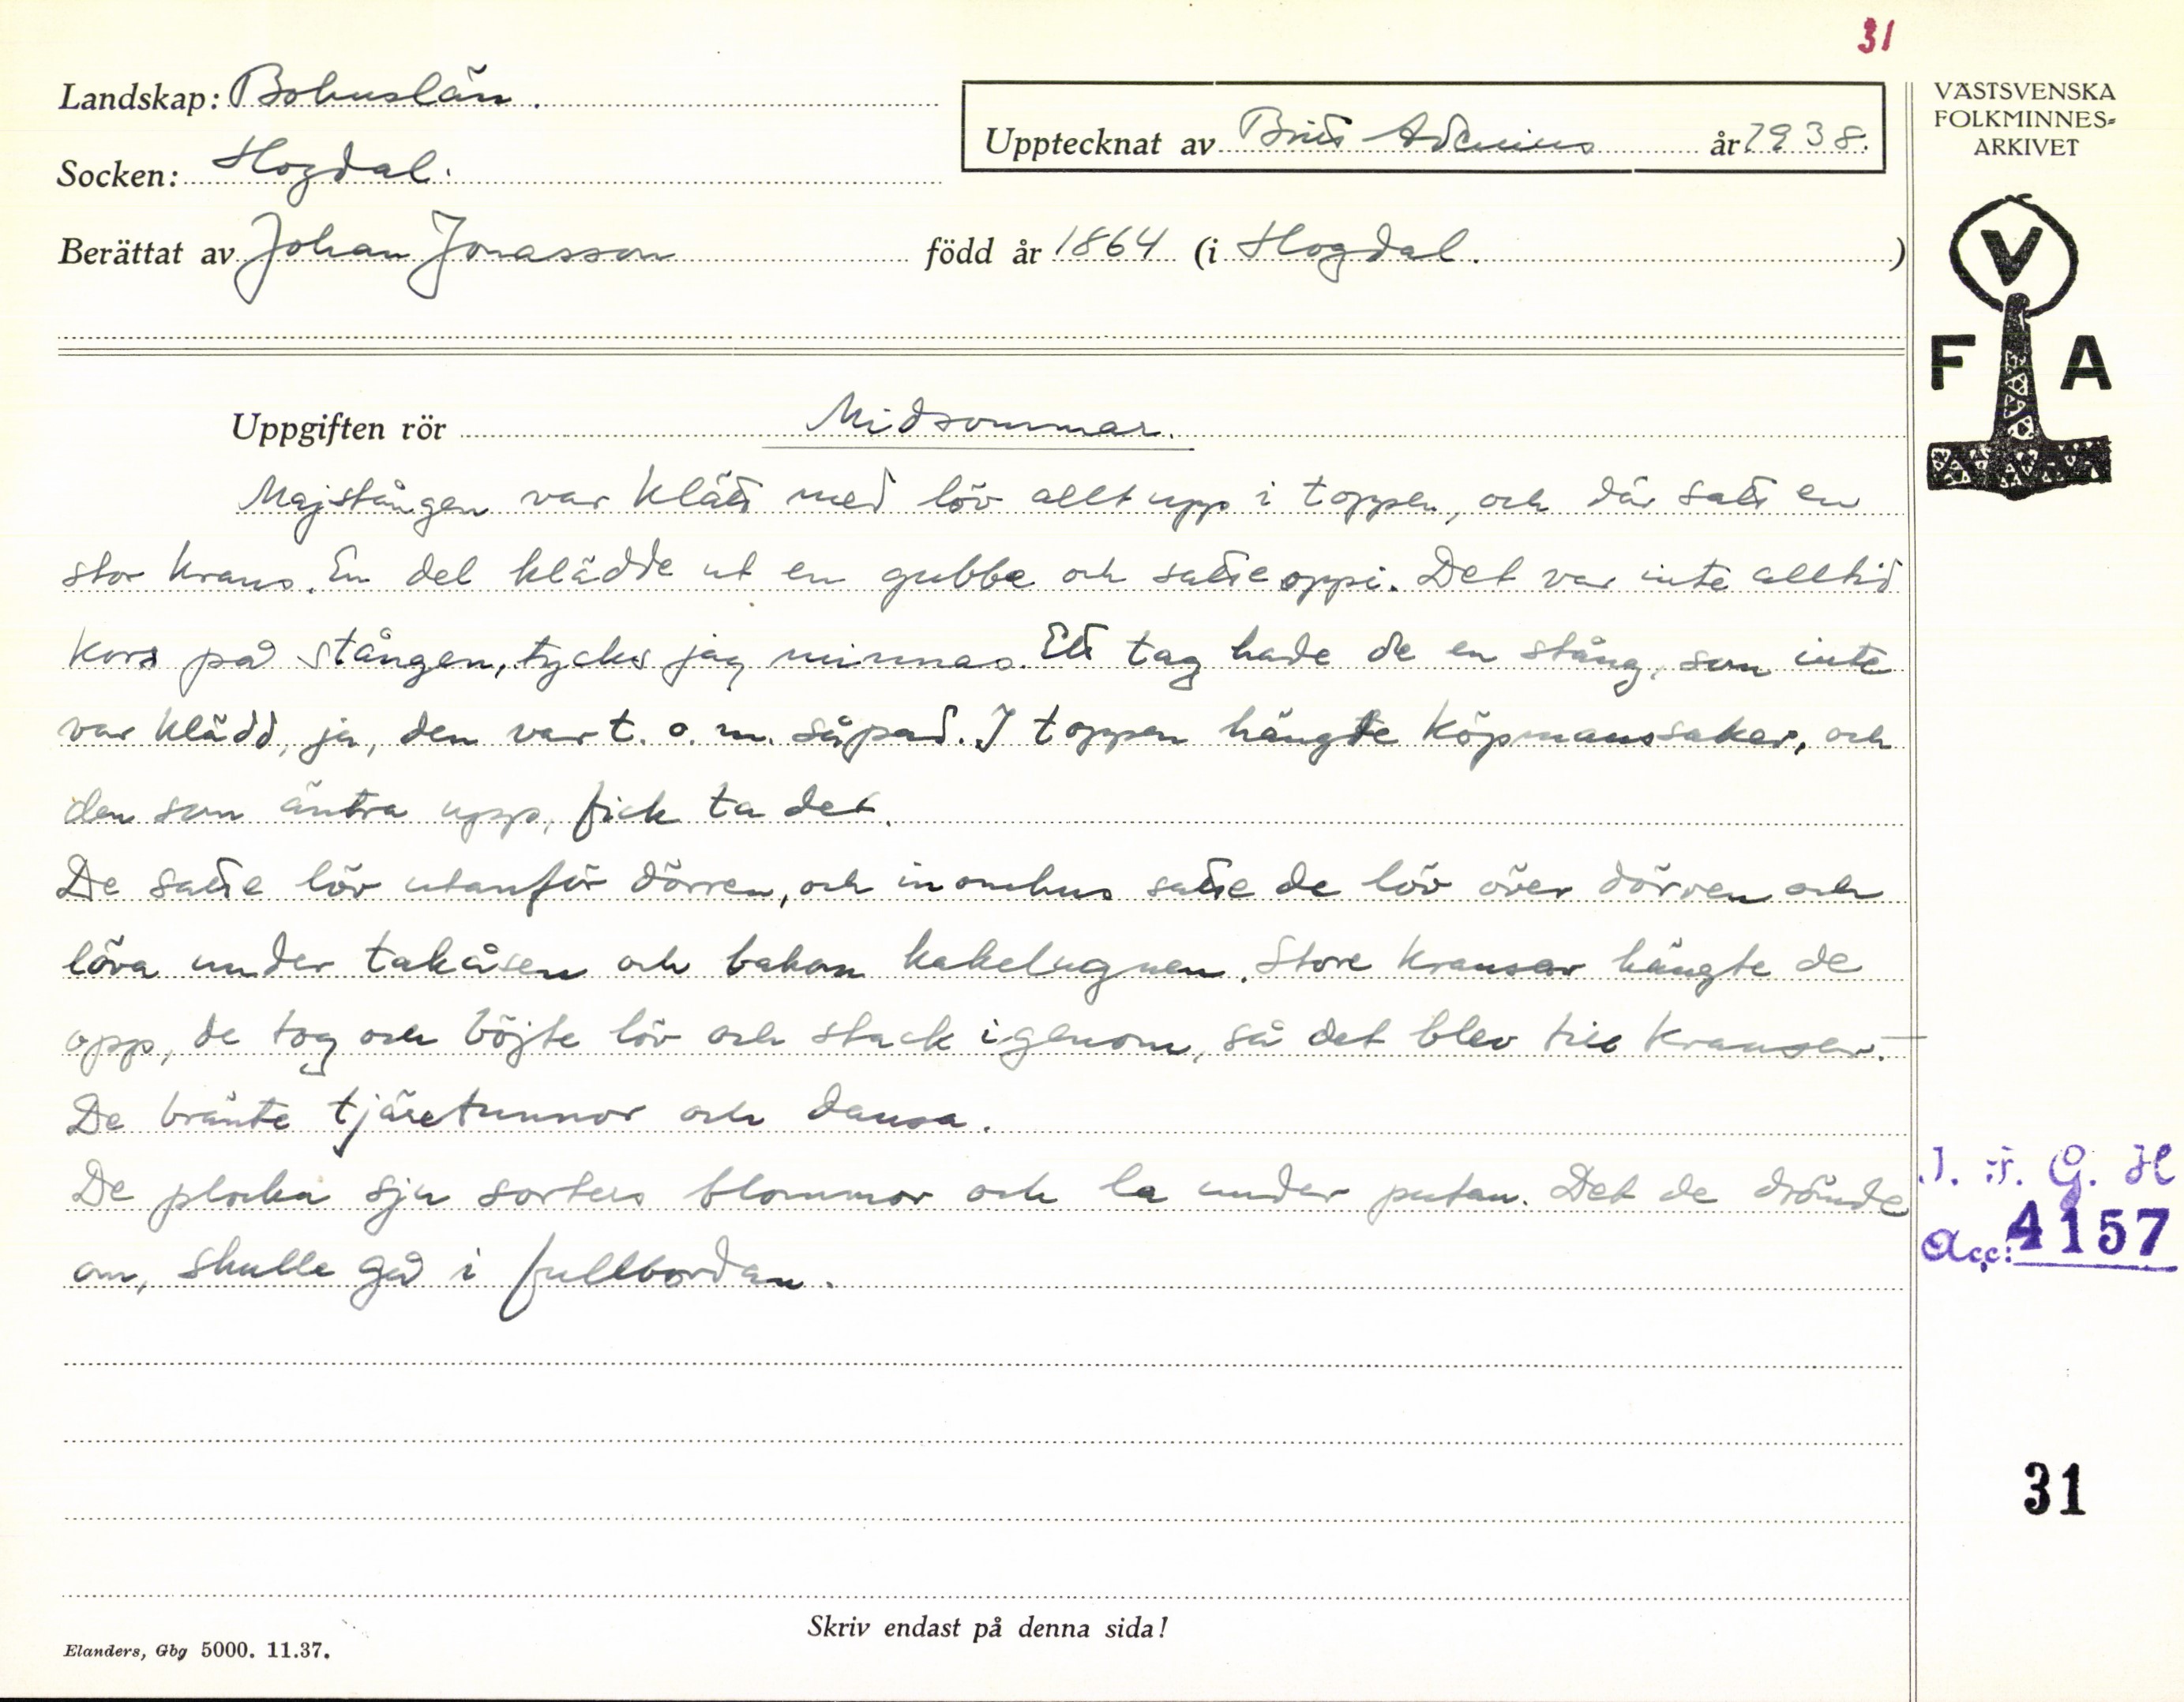 31
Landskap: Bohuslän.
Upptecknat av Britt Ademius år 1938.
Socken: Hogdal.
Berättat av Johan Jonasson född år 1864 (i Hogdal. )
VÄSTSVENSKA
FOLKMINNES=
ARKIVET
V
F A
Uppgiften rör Midsommar.
Majstången var klätt med löv allt upp i toppen, och där satt en
stor krans. En del klädde ut en gubbe och satte oppi. Det var inte alltid
kors på stången, tycks jag minnas. Ett tag hade de en stång, som inte
var klädd, ja, den var t. o. m. såpad. I toppen hängde köpmanssaker, och
den som äntra upp, fick ta det.
De satte löv utanför dörren, och inomhus satte de löv över dörren och
löva under takåsen och bakom kakelugnen. Store kransar hängte de
opp, de tog och böjte löv och stack igenom, så det blev till kranser. —
De brände tjäretunnor och dansa.
De plocka sju sorters blommor och la under putan. Det de drömde
om, skulle gå i fullbordan.
I. F. G. H
Acc: 4157
31
Skriv endast på denna sida!
Elanders, Gbg 5000. 11.37.